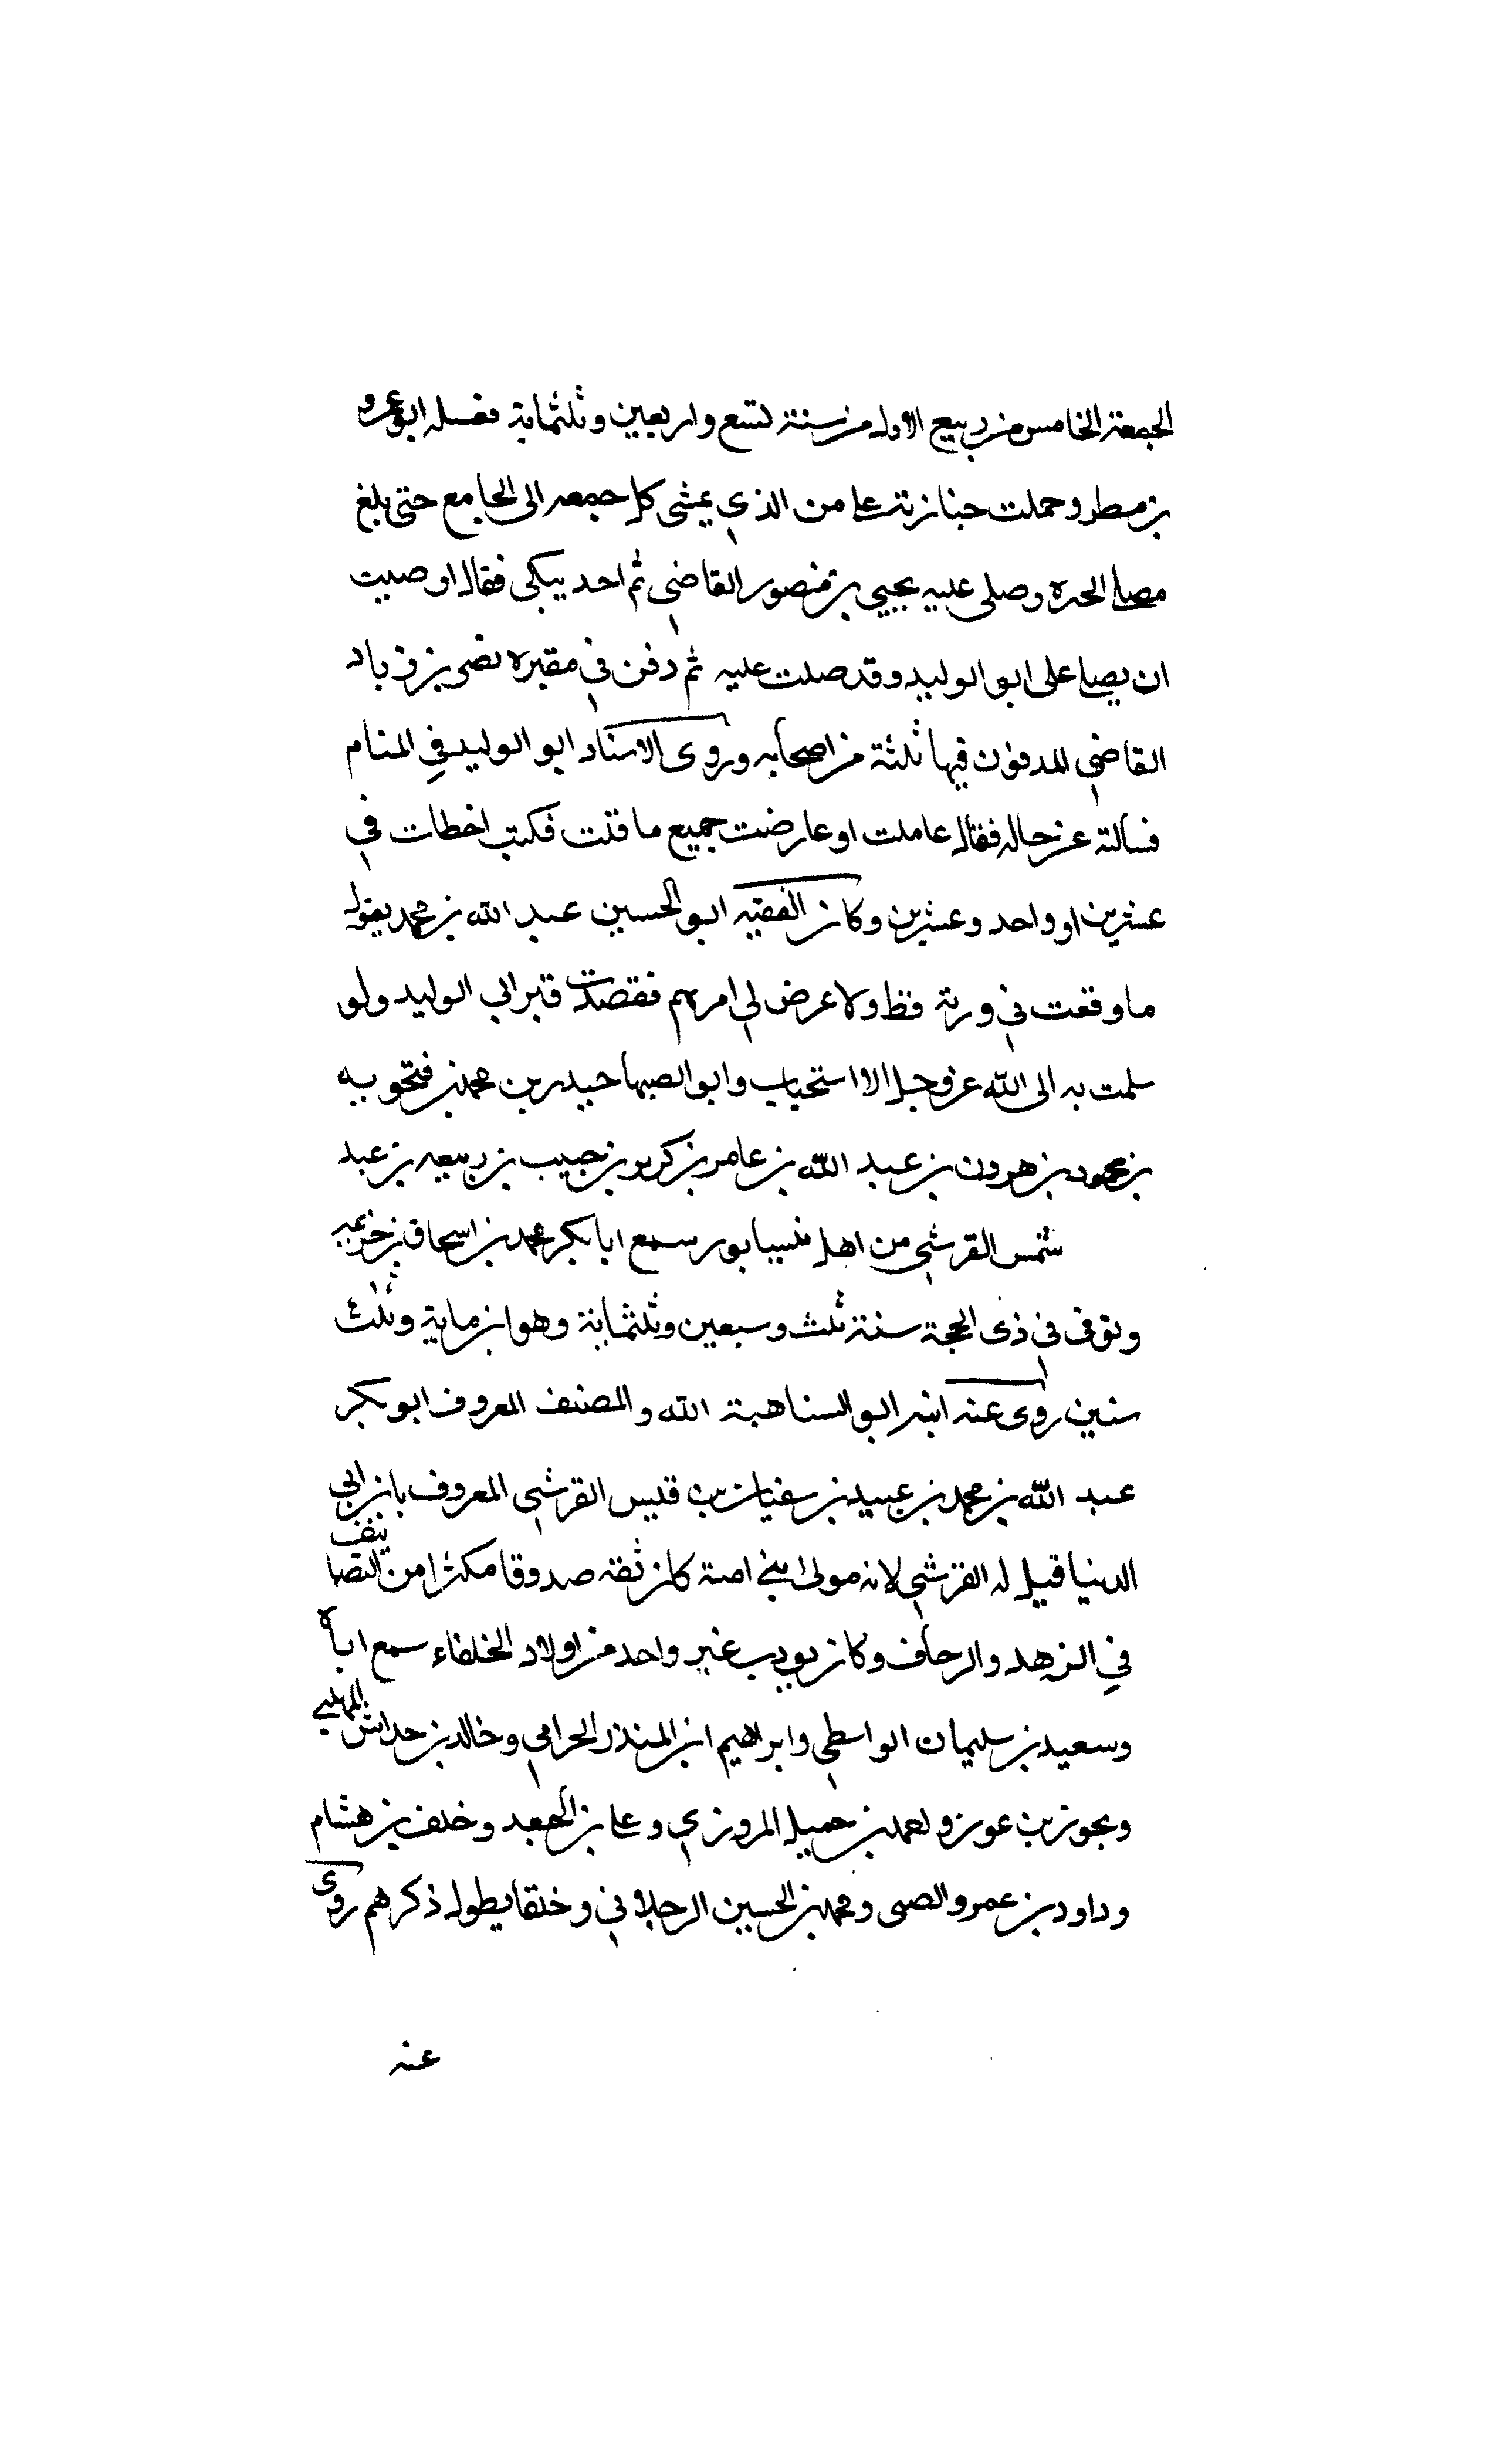 الجمعة الخامس من ربيع الاول من سنة تسع واربعين وثلثماية فغسله ابو عمرو
بن مطر وحملت جنازته على من الذي يمشي كل جمعه الى الجامع حتى بلغ
مصلى الحره وصلى عليه يحيى بن منصور القاضي ثم احد يبكي فقال اوصيت
ان يصلى على ابو الوليد وقد صلت عليه ثم دفن في مقبره نصر بن زياد
القاضي المدفون فيها ثلثة من اصحابه وروى الاستاد ابو الوليد في المنام
فسالته عن حاله فقال عاملت او عارضت جميع ما قلت فكتب اخطات في
عشرين او واحد وعشرين وكان الفقيه ابو الحسين عبد الله بن محمد يقول
ما وقعت في ورتة قط ولا عرض لي امر مهم فقصدت قبر ابي الوليد ولو
سلمت به الى الله عز وجل الا استحباب وابو الصهبا حيدر بن محمد بن فتحويه
بن محمود بن هرون بن عبد الله بن عامر بن كريز بن حبيب بن ربيعه بن عبد
شمس القرشي من اهل نيسابور سمع ابا بكر محمد بن اسحاق بن خزيمه
وتوفى في ذى الحجة سنة ثلث وسبعين وثلثماية وهو ابن ماية وثلث
سنين روى عنه ابنه ابو السنا هبة الله والمصنف المعروف ابو بكر
عبد الله بن محمد بن عبيد بن سفيان بن قيس القرشي المعروف بابن ابي
الدنيا قيل له القرشي لانه مولى بني امية كان ثقة صدوقا مكثرا من التصانيف
في الزهد والرحاف وكان يودب غير واحد من اولاد الخلفاء سمع اباه
وسعيد بن سليمان الواسطي وابراهيم ابن المنذر الحرامي وخالد بن حداش المهلبي
ومحوز بن عون و لعمد بن حميل المروزي وعلى بن الجعد وخلف بن هشام
وداود بن عمرو الصبي ومحمد بن الحسين الرجلاني وخلقا يطول ذكرهم روى
عنه